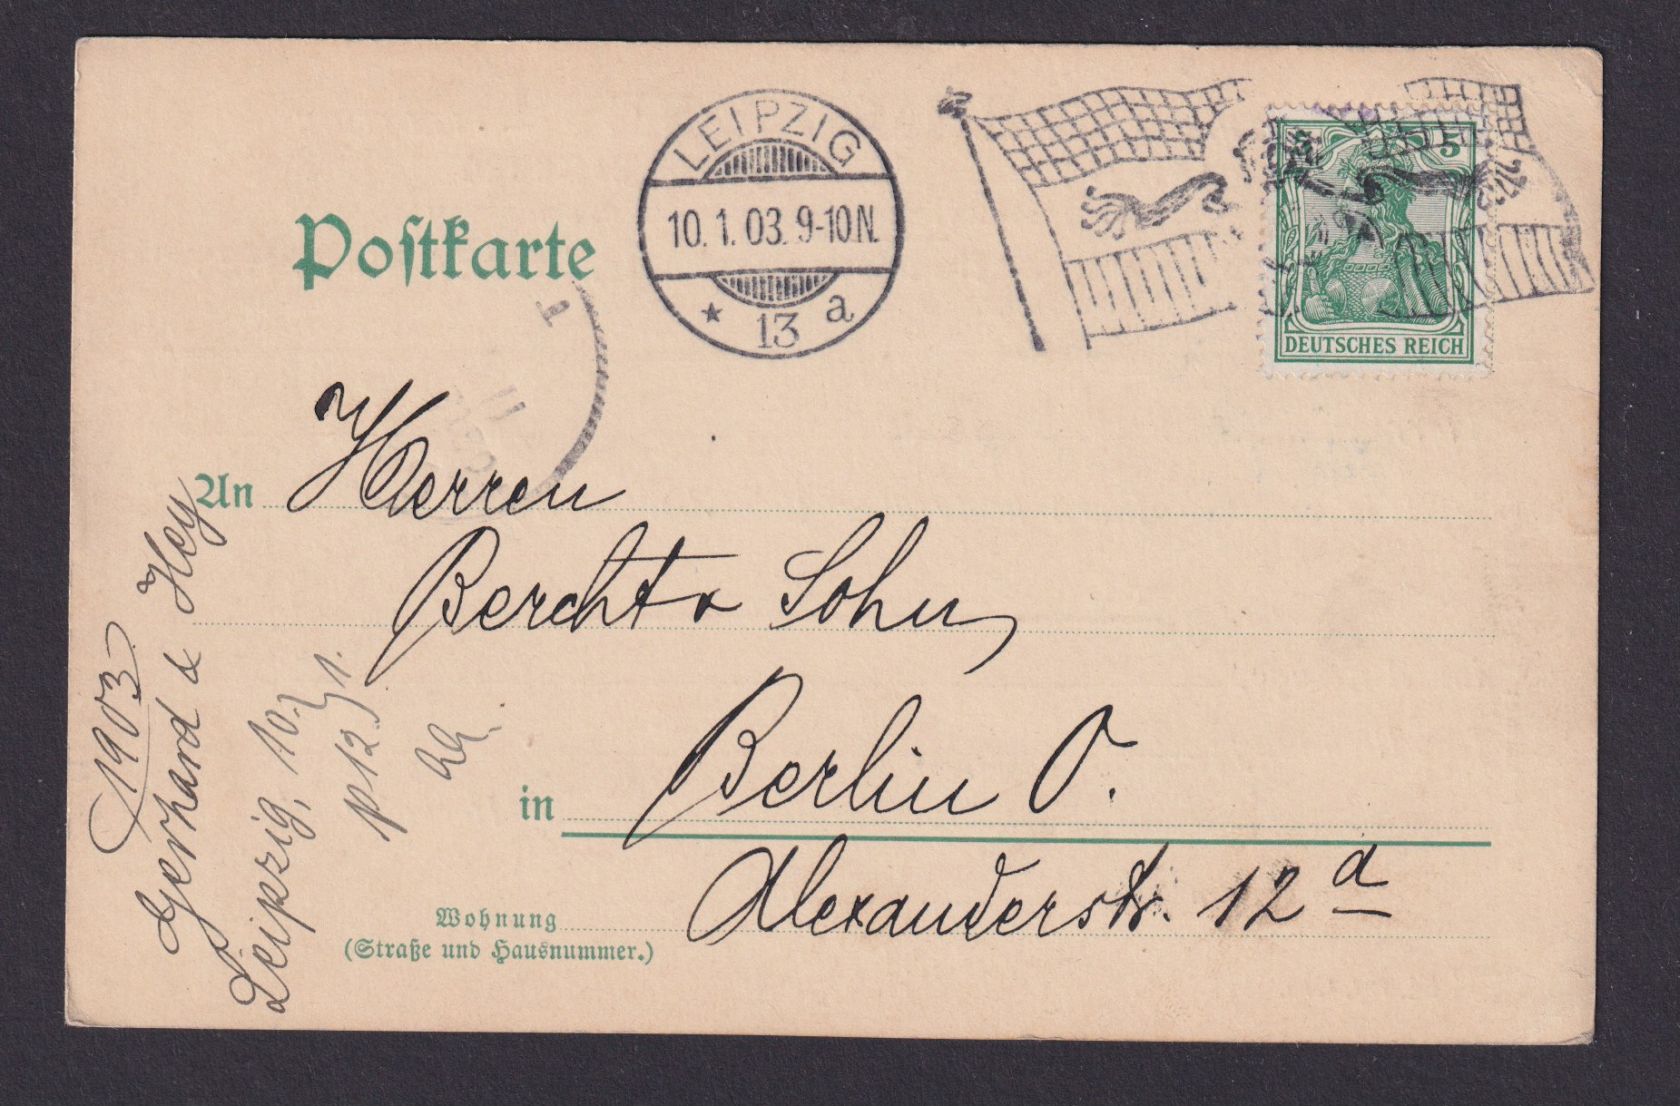 Postkarte
LEIPZIG
10. 1. 03. 9-10 N.
* 13 a
5
DEUTSCHES REICH
An Herren
Bercht & Sohn,
in Berlin O.
Alexanderstr. 12 a
Wohnung
(Straße und Hausnummer.)
1903
Gerhard & Hey
Leipzig, 10. 1.
p 12